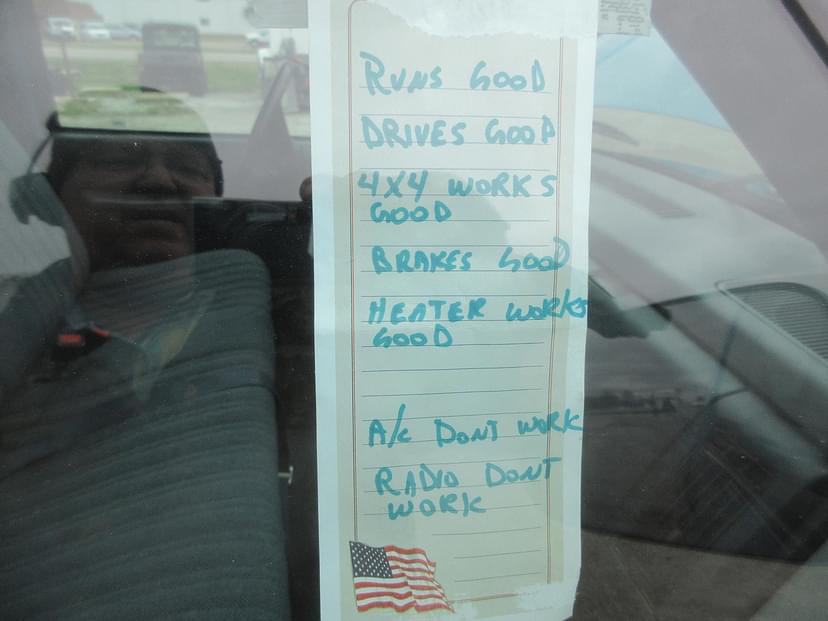 RUNS GOOD
DRIVES GOOD
4X4 WORKS
GOOD
BRAKES GOOD
HEATER WORKS
GOOD
A/C DONT WORK
RADIO DONT
WORK